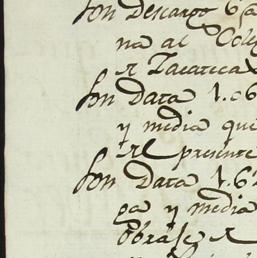 Son Descargo 6
na al Cole
Zacateca
Son Data 1.06
y media que
el presente
Son Data 1.62
ga y media
obraje